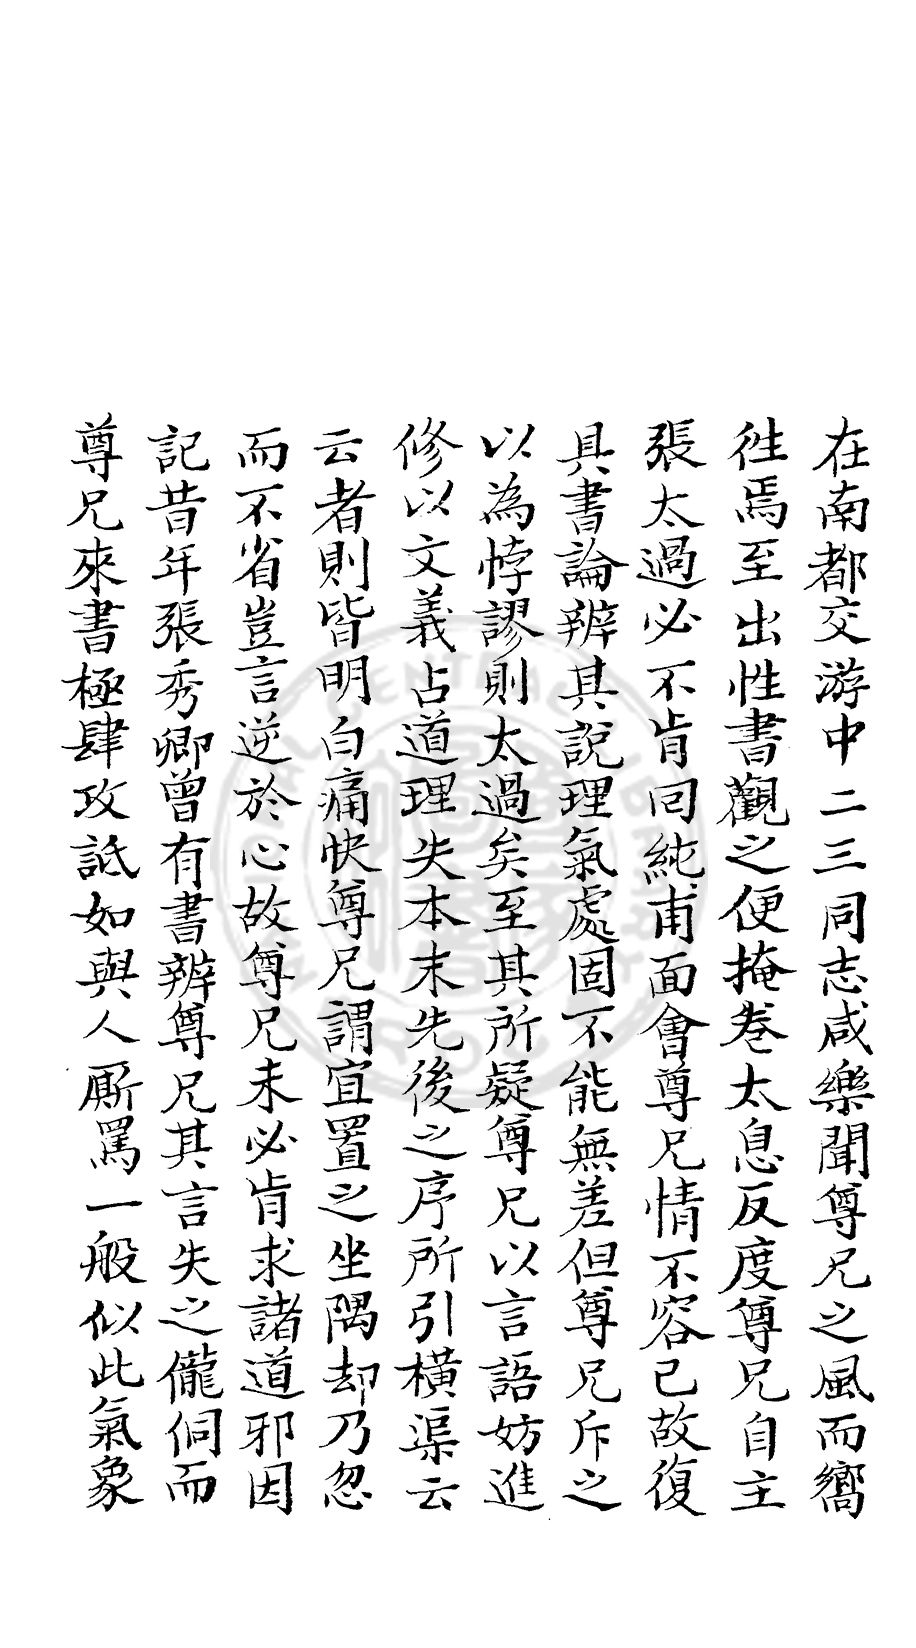 在南都交游中二三同志咸樂聞尊兄之風而嚮
徃焉至出性書觀之便掩卷太息反度尊兄自主
張太過必不肯囘純甫面會尊兄情不容已故復
具書論辨其說理氣處固不能無差但尊兄斥之
以為悖謬則太過矣至其所疑尊兄以言語妨進
修以文義占道理失本末先後之序所引橫渠云
云者則皆明白痛快尊兄謂宜置之坐隅却乃忽
而不省豈言逆於心故尊兄未必肯求諸道邪因
記昔年張秀卿曾有書辨尊兄其言失之儱侗而
尊兄來書極肆攻詆如與人厮罵一般似此氣象